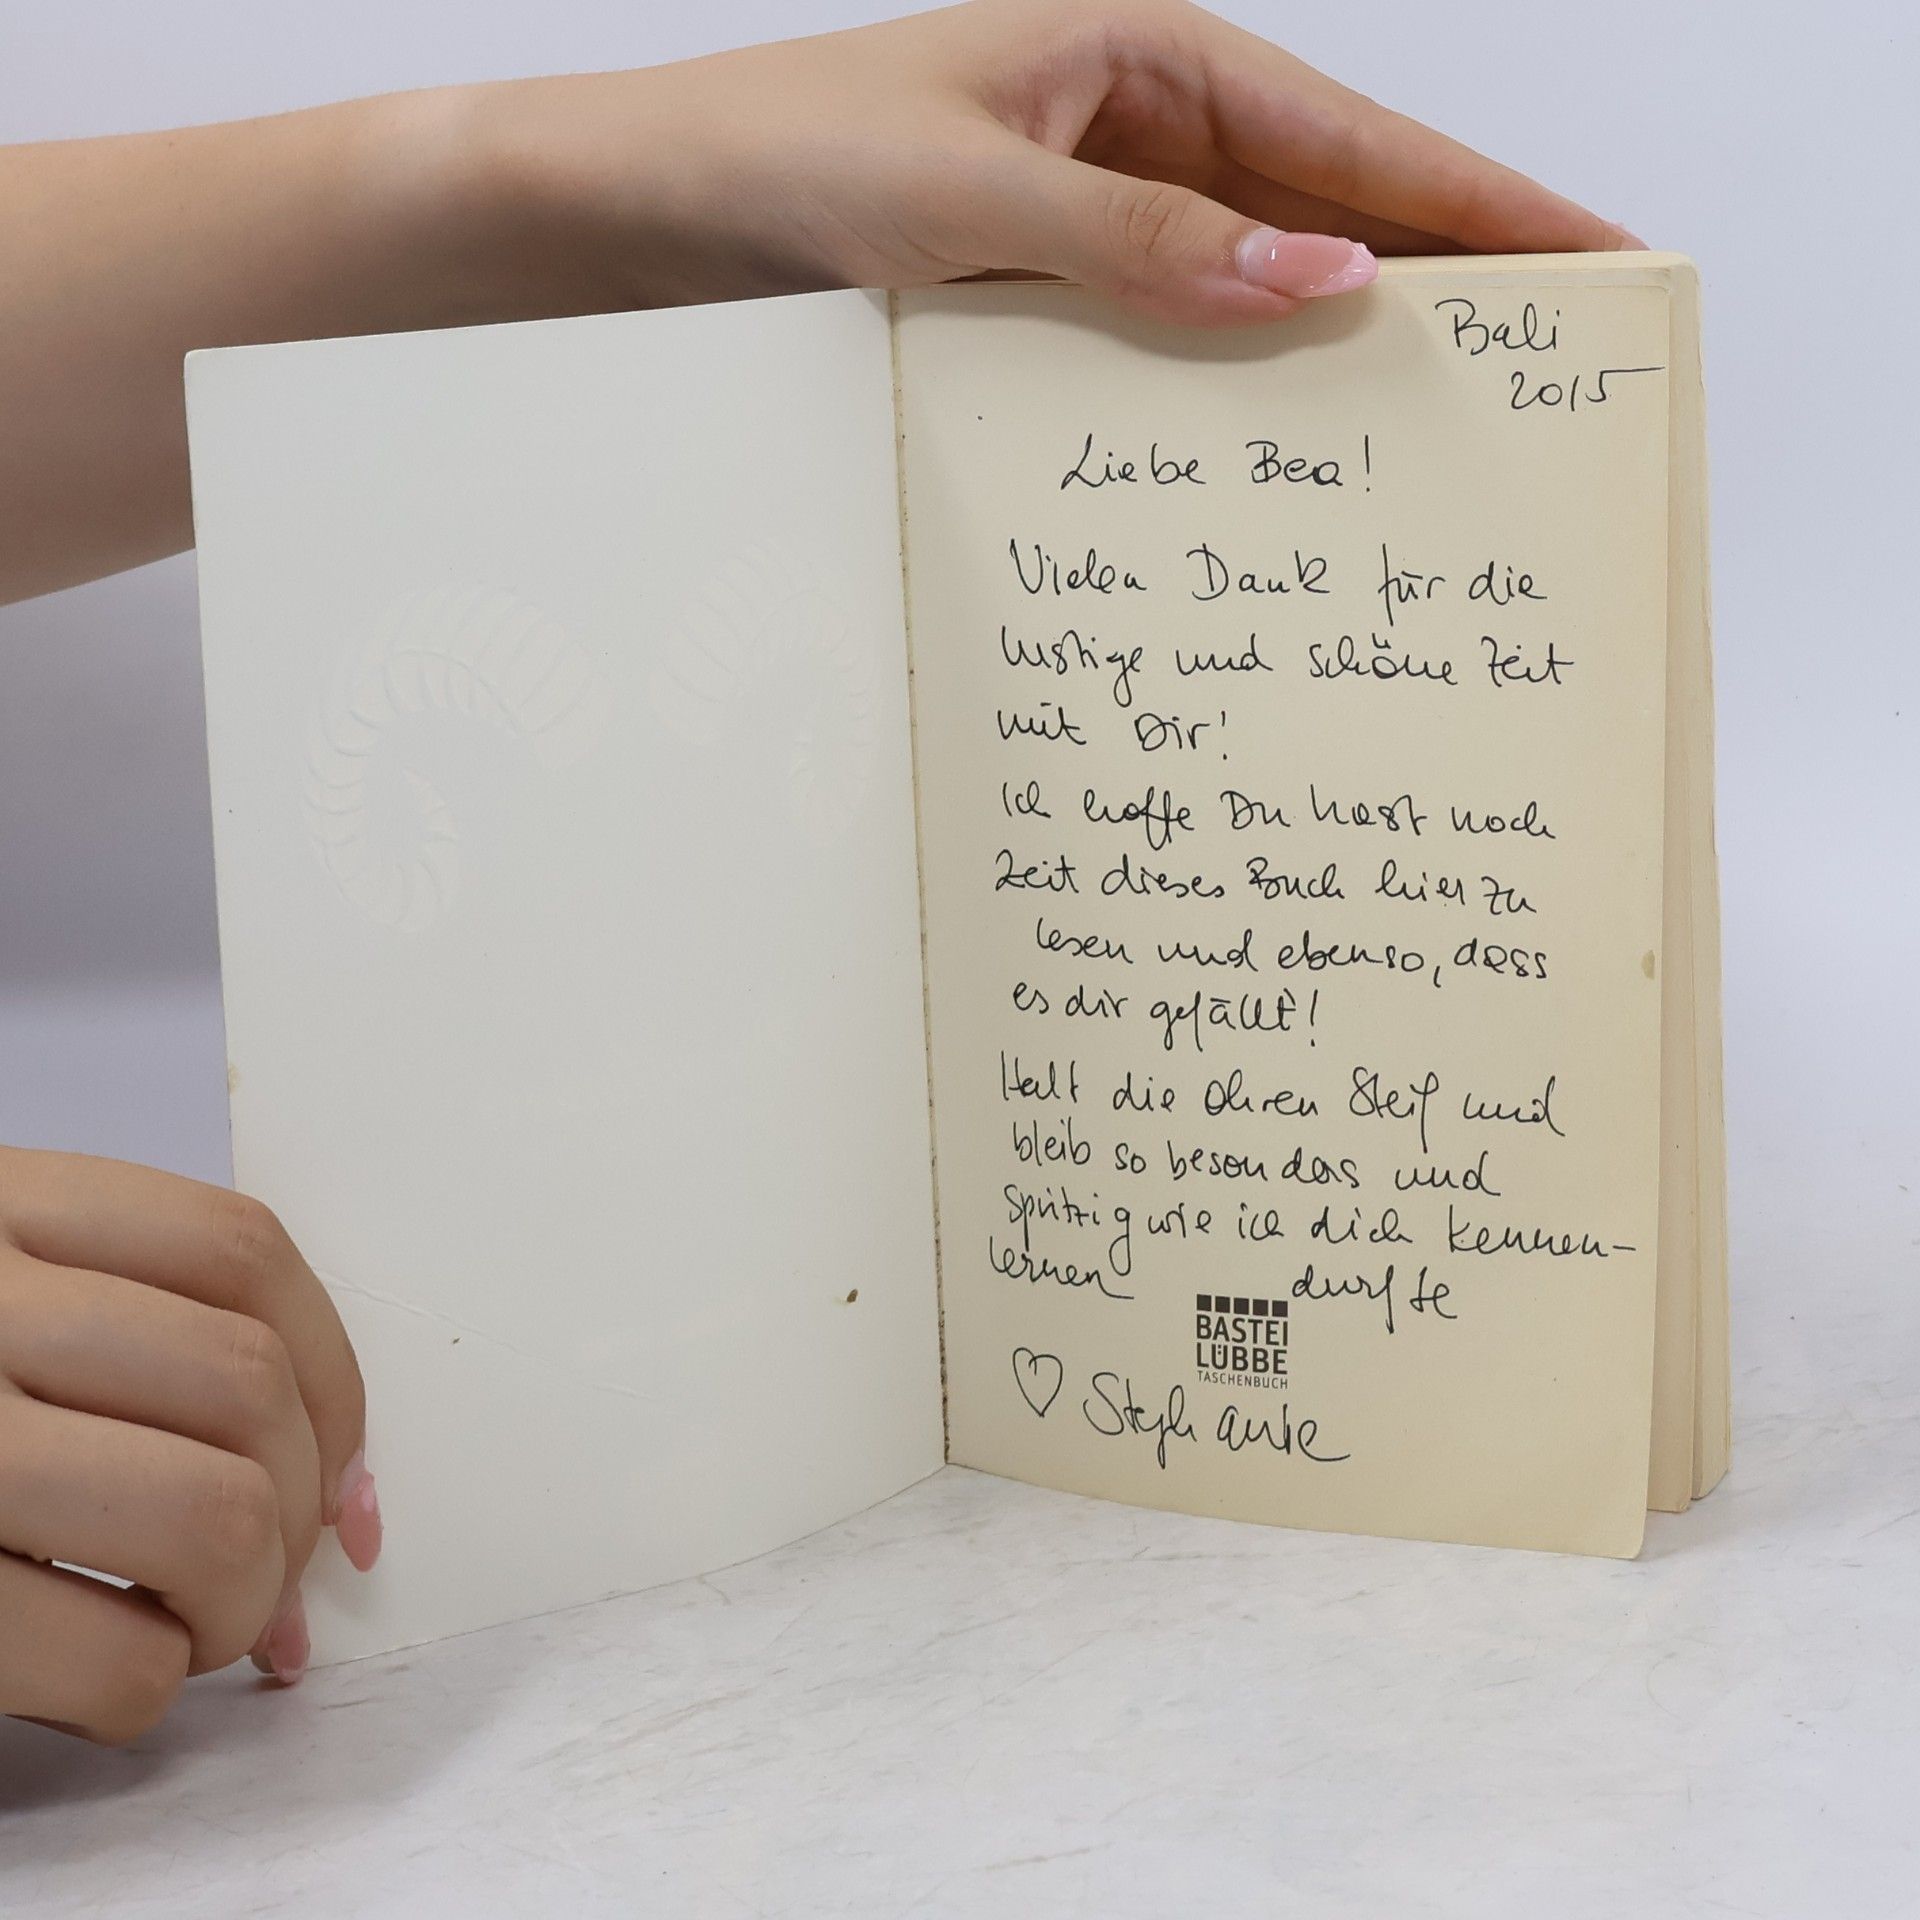 Bali
2015
Liebe Bea!
Vielen Dank für die
lustige und schöne Zeit
mit Dir!
Ich hoffe Du hast noch
Zeit dieses Buch hier zu
lesen und ebenso, dass
es dir gefällt!
Halt die Ohren Steif und
bleib so besonders und
spritzig wie ich dich kennen-
lernen durfte
BASTEI
LÜBBE
TASCHENBUCH
♡ Stephanie